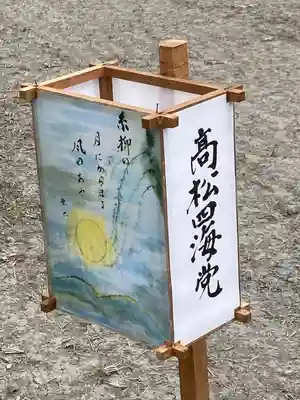 糸柳の
月にからまる
風のあや
高松四海党